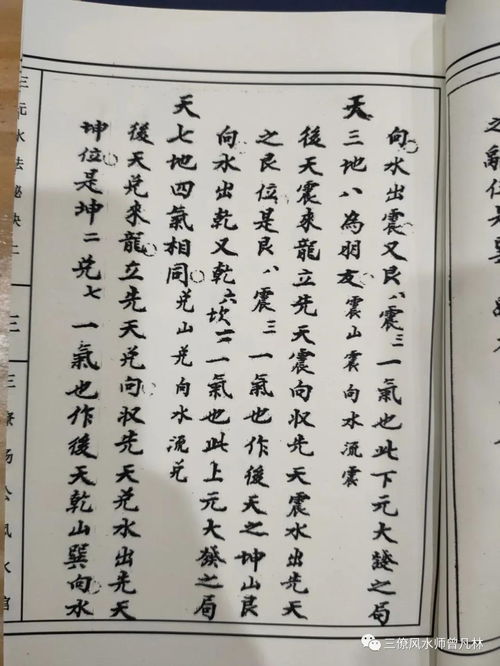 向水出震又艮八震三一氣也此下元大發之局
天三地八為朋友震山震向水流震
後天震來龍立先天震向収先天震水出先天
之艮位是艮八震三一氣也作後天之坤山艮
向水出乾又乾六坎一一氣也此上元大發之局
天七地四氣相同兌山兌向水流兌
後天兌來龍立先天兌向収先天兌水出先天
坤位是坤二兌七一氣也作後天乾山巽向水
三元水法秘决
三
三寮杨公风水馆
三僚风水师曾凡林